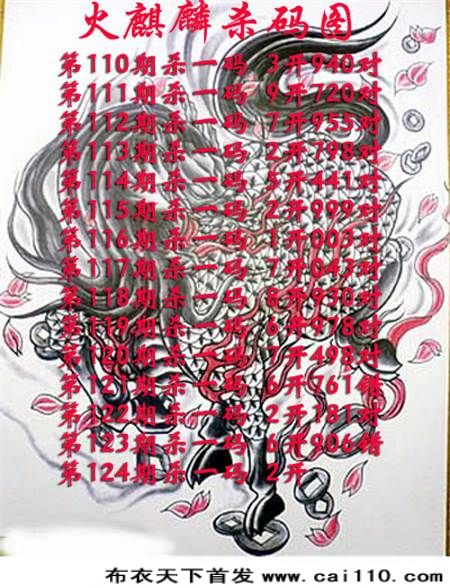 火麒麟杀码图
第110期杀一码 3开940对
第111期杀一码 9开720对
第112期杀一码 7开955对
第113期杀一码 2开798对
第114期杀一码 5开441对
第115期杀一码 2开999对
第116期杀一码 1开003对
第117期杀一码 7开043对
第118期杀一码 8开930对
第119期杀一码 6开978对
第120期杀一码 7开498对
第121期杀一码 6开761错
第122期杀一码 2开181对
第123期杀一码 6开906错
第124期杀一码 2开
布衣天下首发 www.cai110.com